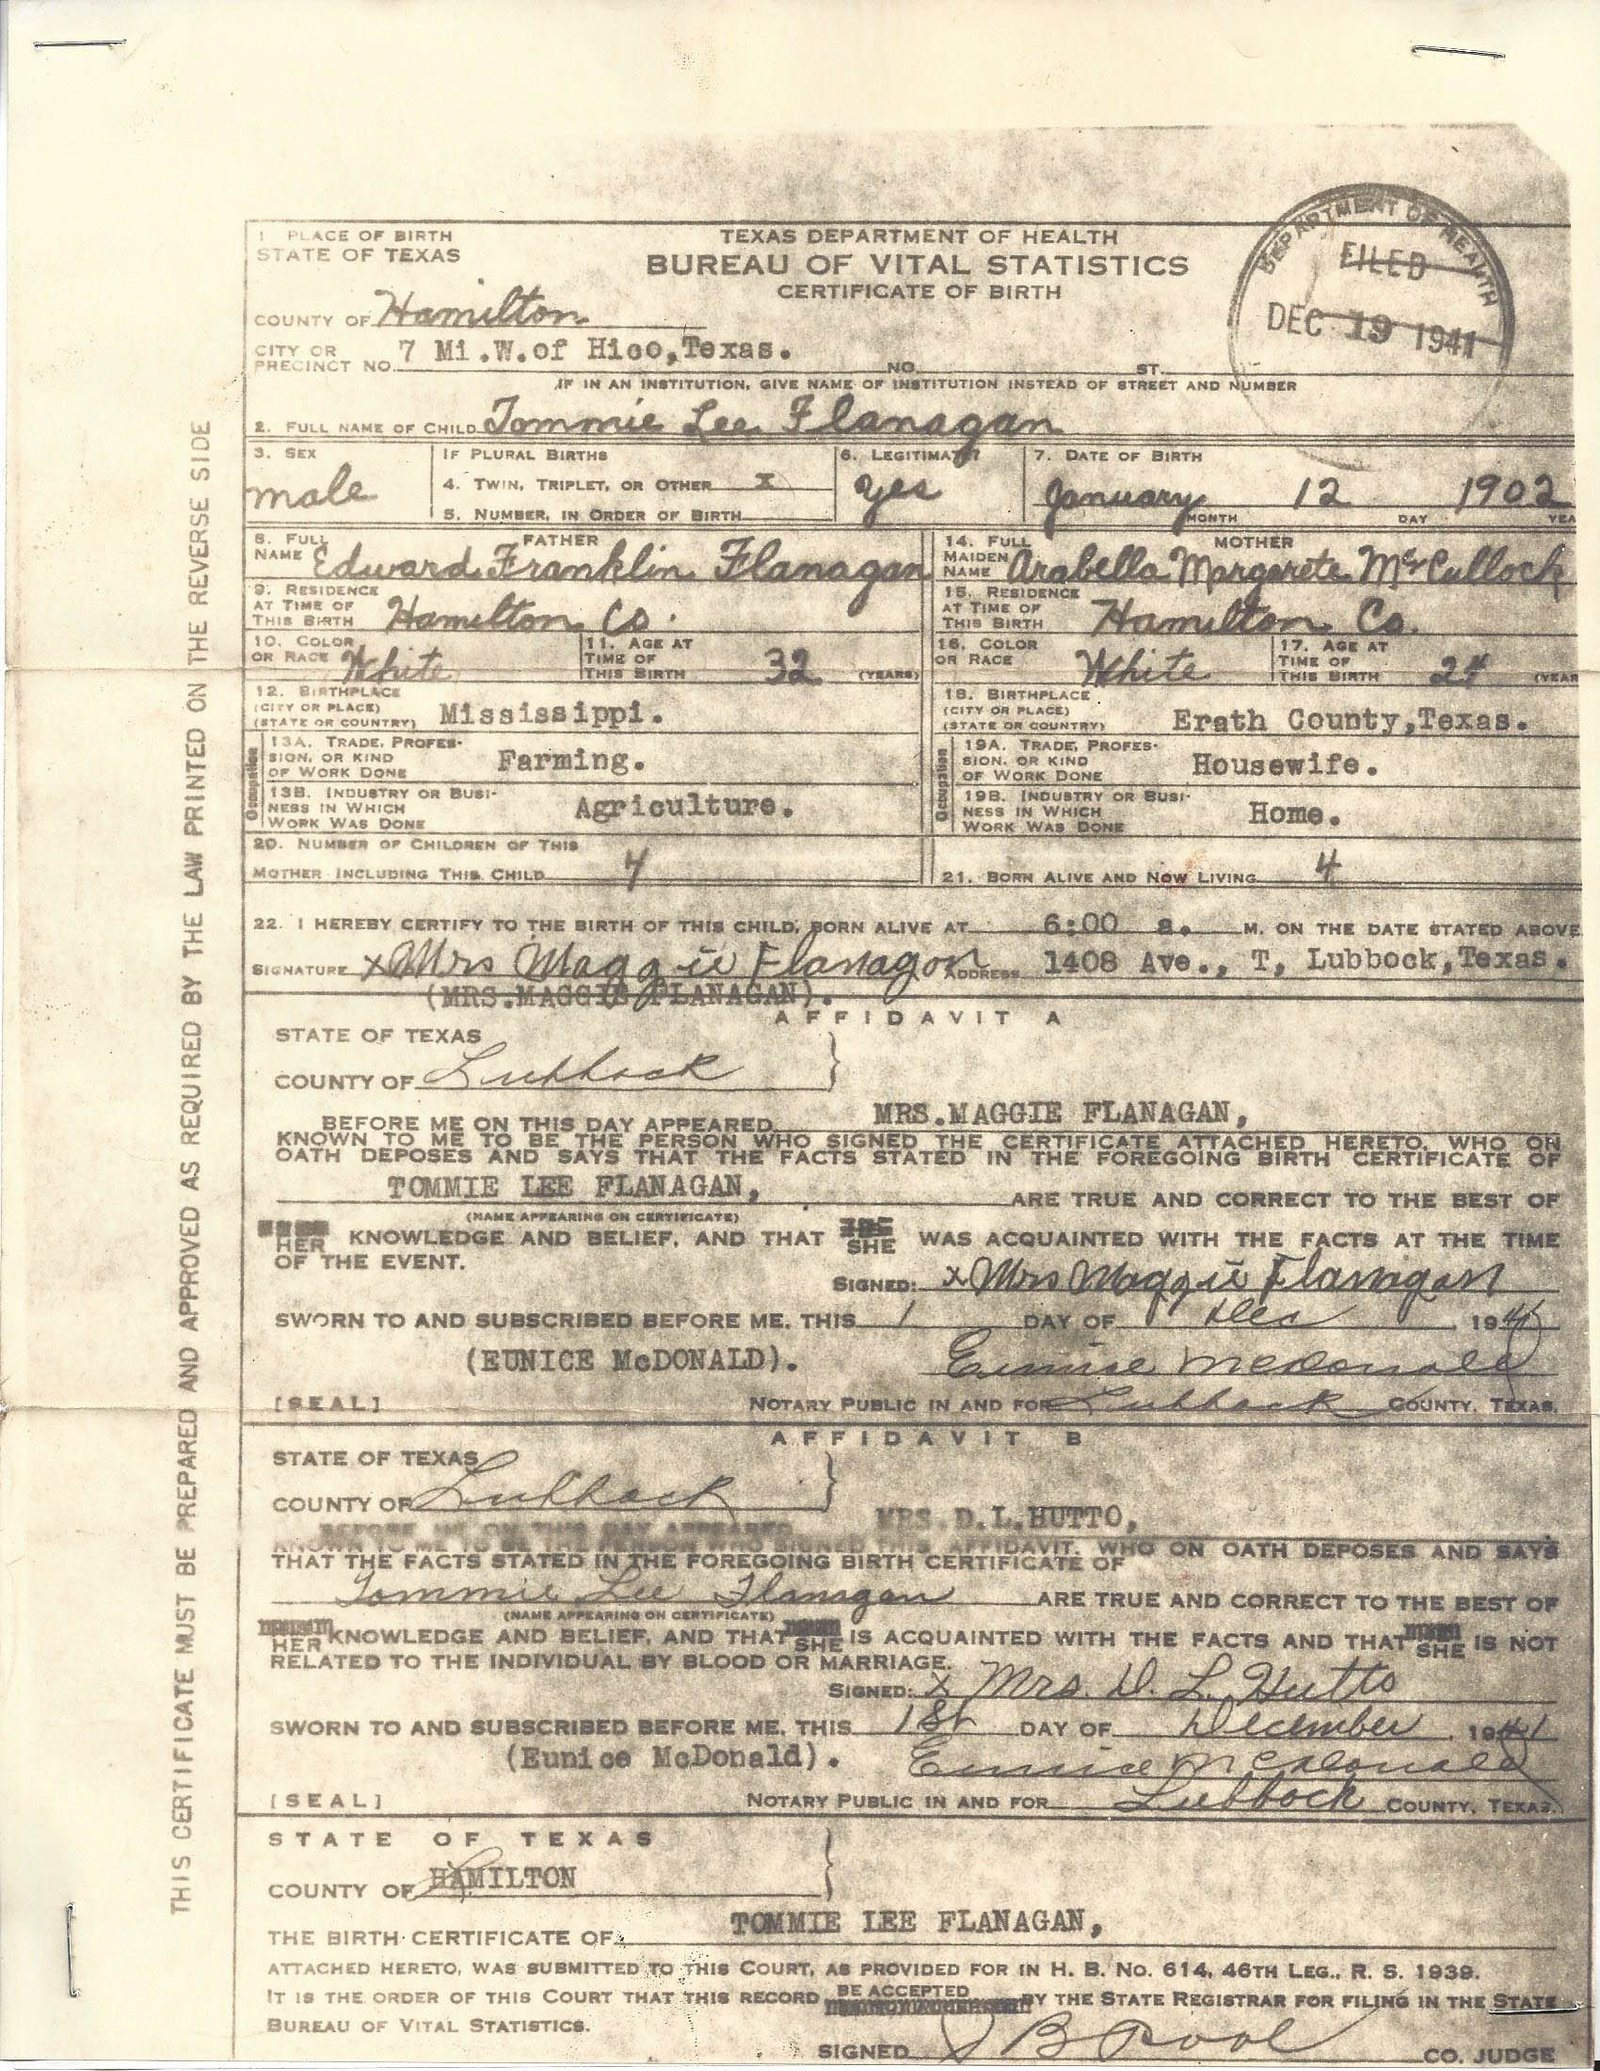 THIS CERTIFICATE MUST BE PREPARED AND APPROVED AS REQUIRED BY THE LAW PRINTED ON THE REVERSE SIDE
DEPARTMENT OF HEALTH
FILED
DEC 19 1941
1. PLACE OF BIRTH
STATE OF TEXAS
TEXAS DEPARTMENT OF HEALTH
BUREAU OF VITAL STATISTICS
CERTIFICATE OF BIRTH
COUNTY OF Hamilton
CITY OR PRECINCT NO. 7 Mi.W.of Hico,Texas. NO. ST.
IF IN AN INSTITUTION, GIVE NAME OF INSTITUTION INSTEAD OF STREET AND NUMBER
2. FULL NAME OF CHILD Tommie Lee Flanagan
3. SEX male
IF PLURAL BIRTHS
4. TWIN, TRIPLET, OR OTHER X
5. NUMBER, IN ORDER OF BIRTH
6. LEGITIMATE? Yes
7. DATE OF BIRTH
January 12 1902
MONTH DAY YEA
FATHER
8. FULL NAME Edward Franklin Flanagan
9. RESIDENCE AT TIME OF THIS BIRTH Hamilton Co.
10. COLOR OR RACE White
11. AGE AT TIME OF THIS BIRTH 32 (YEARS)
12. BIRTHPLACE (CITY OR PLACE) (STATE OR COUNTRY) Mississippi.
Occupation
13A. TRADE, PROFESSION, OR KIND OF WORK DONE Farming.
13B. INDUSTRY OR BUSINESS IN WHICH WORK WAS DONE Agriculture.
MOTHER
14. FULL MAIDEN NAME Arabella Margarete McCullock
15. RESIDENCE AT TIME OF THIS BIRTH Hamilton Co.
16. COLOR OR RACE White
17. AGE AT TIME OF THIS BIRTH 24 (YEAR
18. BIRTHPLACE (CITY OR PLACE) (STATE OR COUNTRY) Erath County,Texas.
Occupation
19A. TRADE, PROFESSION, OR KIND OF WORK DONE Housewife.
19B. INDUSTRY OR BUSINESS IN WHICH WORK WAS DONE Home.
20. NUMBER OF CHILDREN OF THIS
MOTHER INCLUDING THIS CHILD 4
21. BORN ALIVE AND NOW LIVING 4
22. I HEREBY CERTIFY TO THE BIRTH OF THIS CHILD, BORN ALIVE AT 6:00 a. M. ON THE DATE STATED ABOVE
SIGNATURE x Mrs Maggie Flanagan ADDRESS 1408 Ave., T, Lubbock,Texas.
(MRS.MAGGIE FLANAGAN).
AFFIDAVIT A
STATE OF TEXAS
COUNTY OF Lubbock
BEFORE ME ON THIS DAY APPEARED MRS.MAGGIE FLANAGAN,
KNOWN TO ME TO BE THE PERSON WHO SIGNED THE CERTIFICATE ATTACHED HERETO, WHO ON
OATH DEPOSES AND SAYS THAT THE FACTS STATED IN THE FOREGOING BIRTH CERTIFICATE OF
TOMMIE LEE FLANAGAN, ARE TRUE AND CORRECT TO THE BEST OF
(NAME APPEARING ON CERTIFICATE)
HER KNOWLEDGE AND BELIEF, AND THAT SHE WAS ACQUAINTED WITH THE FACTS AT THE TIME
OF THE EVENT.
SIGNED: x Mrs Maggie Flanagan
SWORN TO AND SUBSCRIBED BEFORE ME, THIS 1 DAY OF Dec 1941
(EUNICE McDONALD). Eunice McDonald
[SEAL] NOTARY PUBLIC IN AND FOR Lubbock COUNTY, TEXAS.
AFFIDAVIT B
STATE OF TEXAS
COUNTY OF Lubbock
BEFORE ME ON THIS DAY APPEARED MRS.D.L.HUTTO,
KNOWN TO ME TO BE THE PERSON WHO SIGNED THIS AFFIDAVIT, WHO ON OATH DEPOSES AND SAYS
THAT THE FACTS STATED IN THE FOREGOING BIRTH CERTIFICATE OF
Tommie Lee Flanagan ARE TRUE AND CORRECT TO THE BEST OF
(NAME APPEARING ON CERTIFICATE)
HER KNOWLEDGE AND BELIEF, AND THAT SHE IS ACQUAINTED WITH THE FACTS AND THAT SHE IS NOT
RELATED TO THE INDIVIDUAL BY BLOOD OR MARRIAGE.
SIGNED: x Mrs. D. L. Hutto
SWORN TO AND SUBSCRIBED BEFORE ME, THIS 1st DAY OF December, 1941
(Eunice McDonald). Eunice McDonald
[SEAL] NOTARY PUBLIC IN AND FOR Lubbock COUNTY, TEXAS.
STATE OF TEXAS
COUNTY OF HAMILTON
THE BIRTH CERTIFICATE OF TOMMIE LEE FLANAGAN,
ATTACHED HERETO, WAS SUBMITTED TO THIS COURT, AS PROVIDED FOR IN H. B. NO. 614, 46TH LEG., R. S. 1939.
IT IS THE ORDER OF THIS COURT THAT THIS RECORD BE ACCEPTED BY THE STATE REGISTRAR FOR FILING IN THE STATE
BUREAU OF VITAL STATISTICS.
SIGNED J B Pool CO. JUDGE